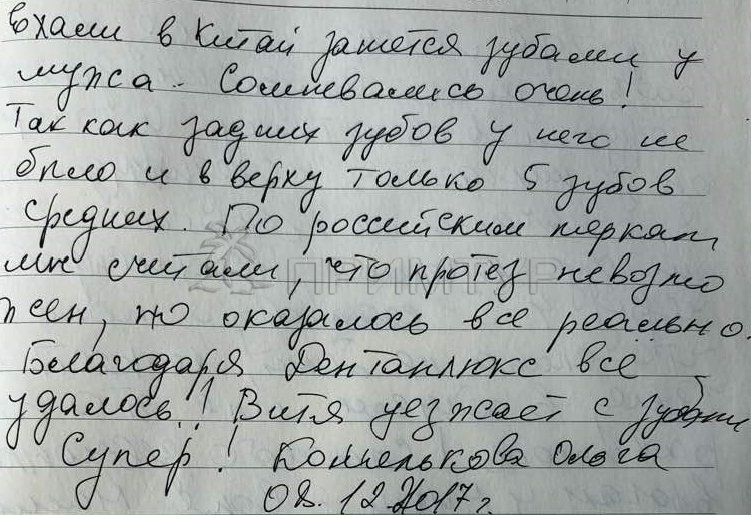 ехали в Китай занется зубами у
мужа. Сомневались очень!
Так как задних зубов у него не
было и в верху только 5 зубов
средних. По российским меркам
мы считали, что протез невозмо
жен, но оказалось все реально.
Благодаря Денталюкс все
удалось!! Витя уезжает с зубами
Супер! Ольга
08.12.2017г.
ПРИМТУР